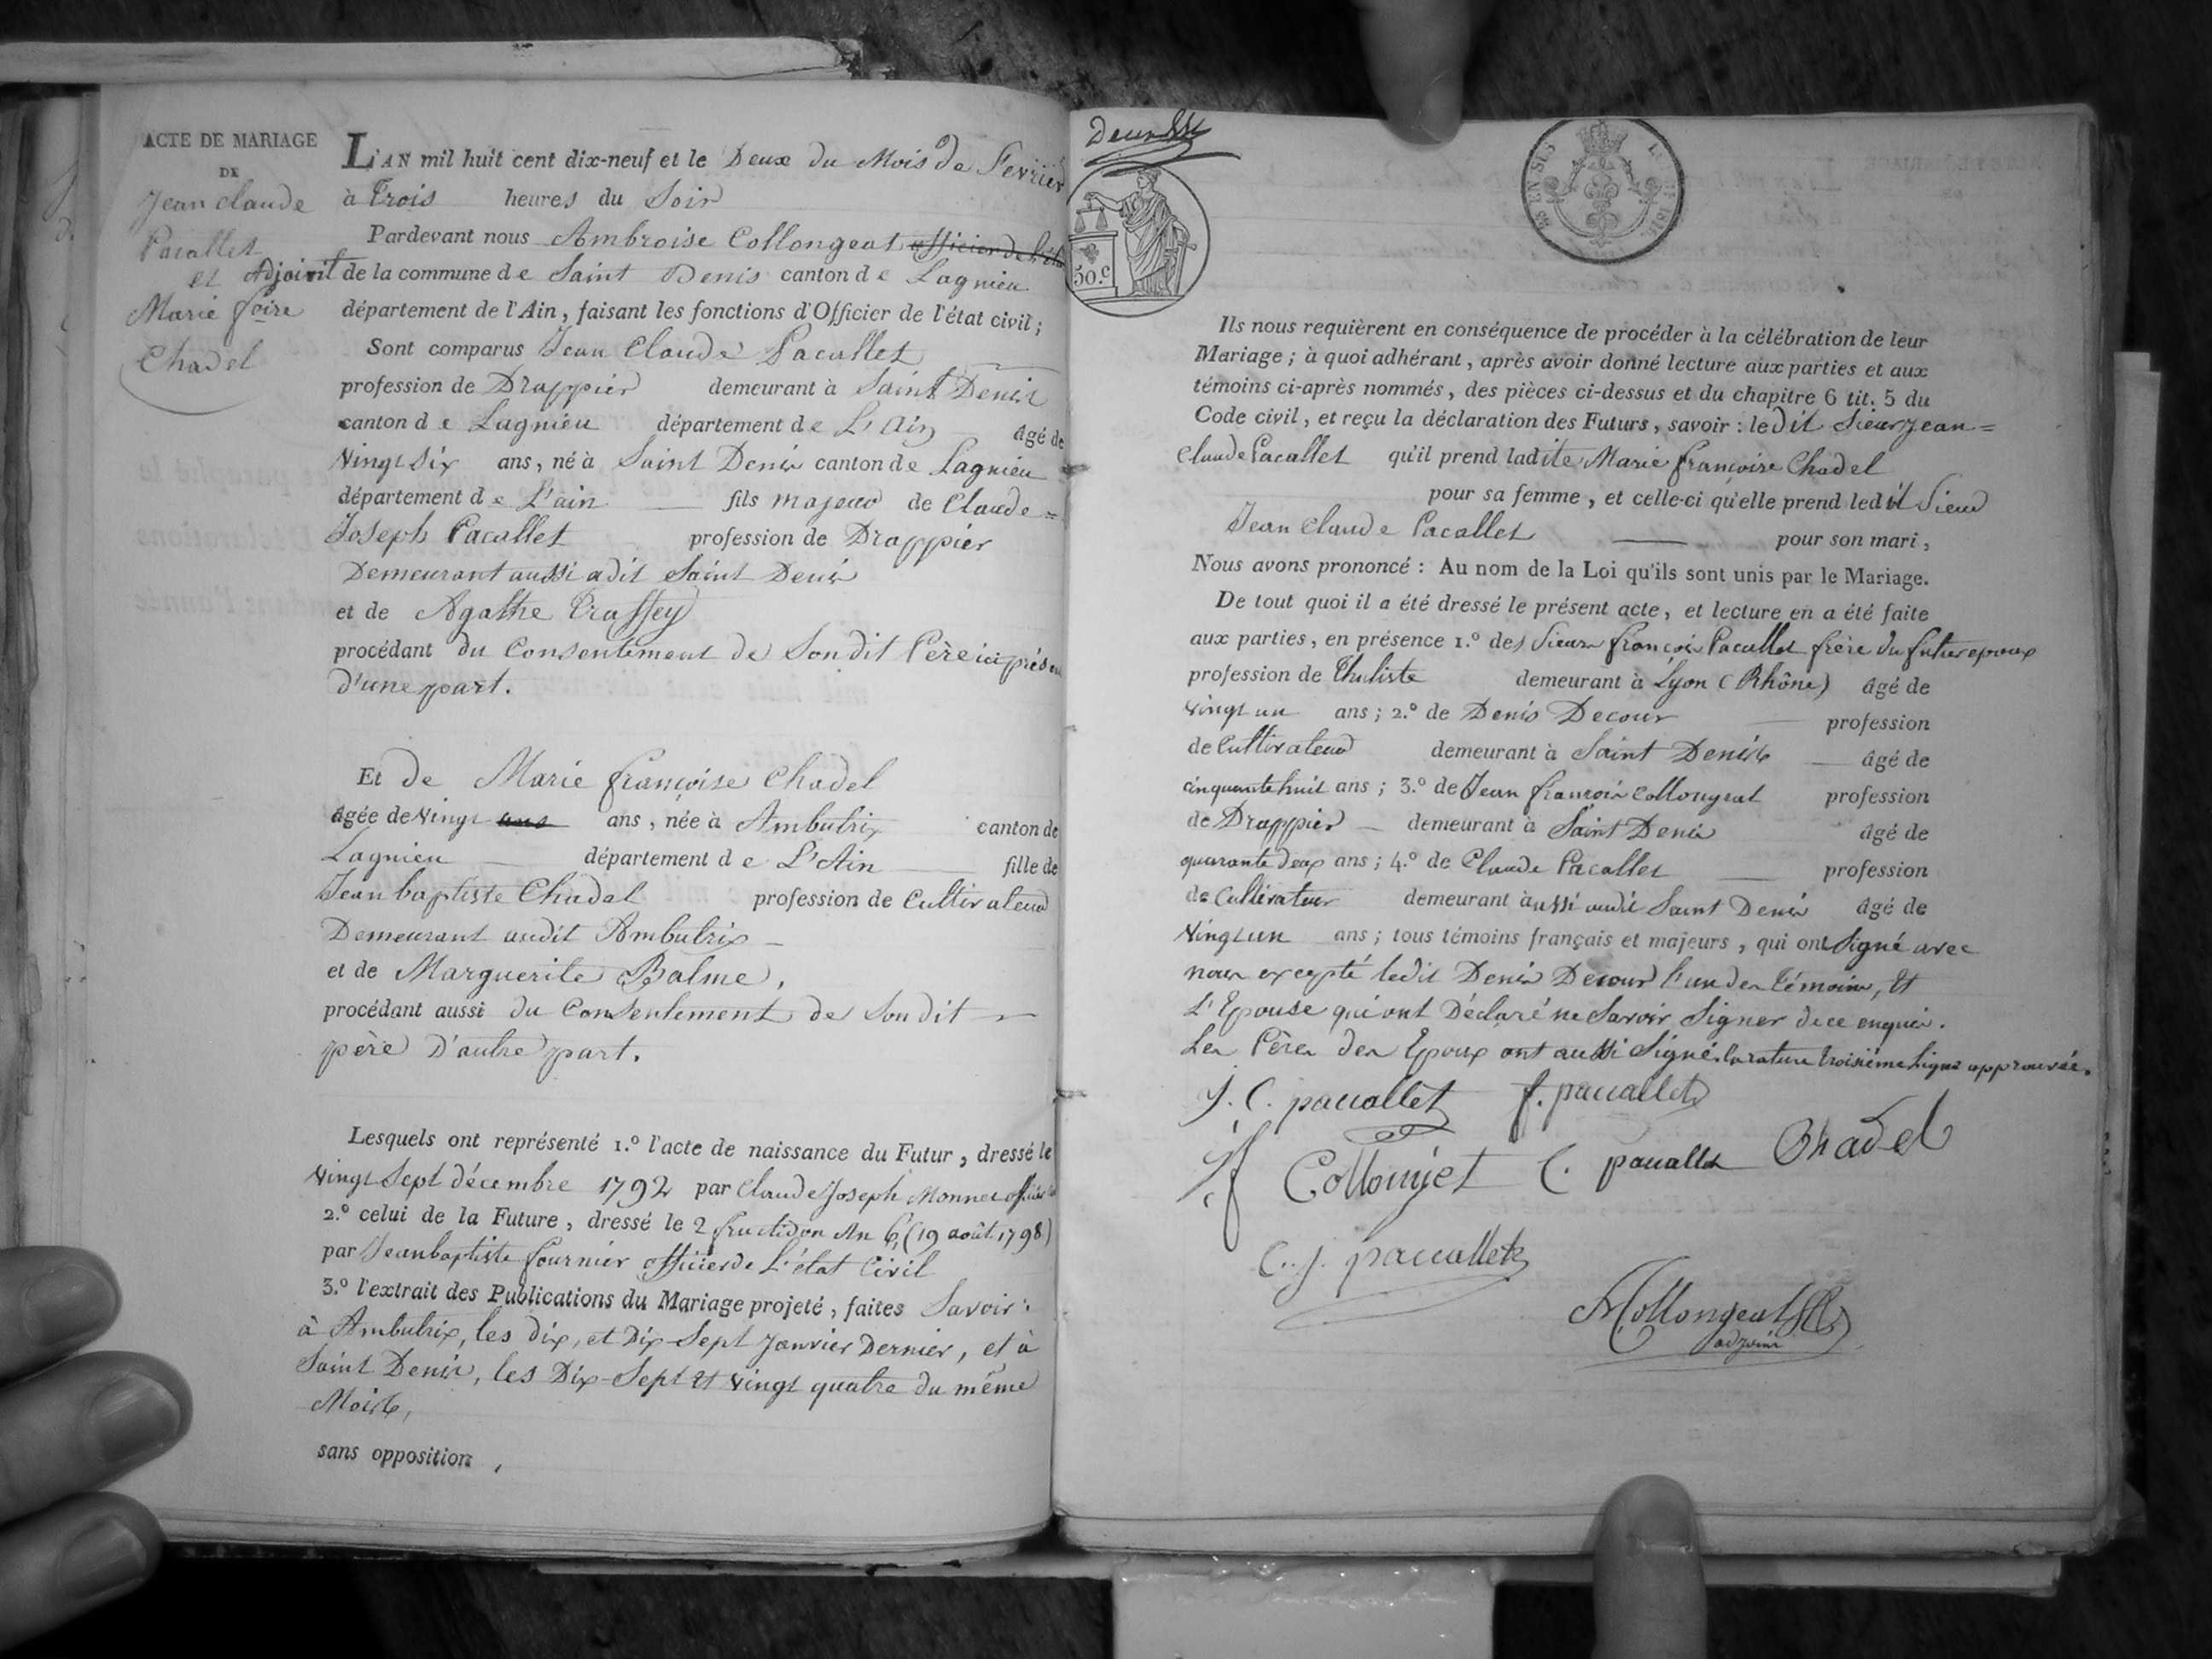 ACTE DE MARIAGE
DE
Jean claude
Pacallet
et
Marie foire
Chadel
L'AN mil huit cent dix-neuf et le Deux du Mois de Fevrier
à Trois heures du Soir
Pardevant nous Ambroise Collongeat officier de l'éta
Adjoint de la commune de Saint Denis canton de Lagnieu
département de l'Ain, faisant les fonctions d'Officier de l'état civil;
Sont comparus Jean Claude Pacallet
profession de Drappier demeurant à Saint Denis
canton de Lagnieu département de L'Ain âgé de
Vingt Six ans, né à Saint Denis canton de Lagnieu
département de L'ain fils majeur de Claude=
Joseph Pacallet profession de Drappier
Demeurant aussi adit Saint Denis
et de Agathe Traffey
procédant du Consentement de Son dit Père ici présen
d'une part.
Et de Marie françoise Chadel
âgée de Vingt ans ans, née à Ambutrix canton de
Lagnieu département de L'Ain fille de
Jean baptiste Chadel profession de Cultivateur
Demeurant audit Ambutrix
et de Marguerite Balme,
procédant aussi du Consentement de Son dit
père D'autre part.
Lesquels ont représenté 1.º l'acte de naissance du Futur, dressé le
Vingt Sept décembre 1792 par Claude Joseph Monnet
2.º celui de la Future, dressé le 2 fructidor An 6, (19 août 1798)
par Jean baptiste fournier officier de L'état Civil
3.º l'extrait des Publications du Mariage projeté, faites Savoir:
à Ambutrix, les dix, et Dix-Sept Janvier Dernier, et à
Saint Denis, les Dix-Sept et vingt quatre du même
Mois,
sans opposition,
50.c
Ils nous requièrent en conséquence de procéder à la célébration de leur
Mariage; à quoi adhérant, après avoir donné lecture aux parties et aux
témoins ci-après nommés, des pièces ci-dessus et du chapitre 6 tit. 5 du
Code civil, et reçu la déclaration des Futurs, savoir: le dit Sieur Jean=
Claude Pacallet qu'il prend ladite Marie françoise Chadel
pour sa femme, et celle-ci qu'elle prend ledit Sieur
Jean Claude Pacallet pour son mari,
Nous avons prononcé: Au nom de la Loi qu'ils sont unis par le Mariage.
De tout quoi il a été dressé le présent acte, et lecture en a été faite
aux parties, en présence 1.º des Sieurs françois Pacallet frère du futur epoux
profession de Thuliste demeurant à Lyon (Rhône) âgé de
vingt un ans; 2.º de Denis Decour profession
de Cultivateur demeurant à Saint Denis âgé de
cinquante huit ans; 3.º de Jean francois Collongeat profession
de Drappier demeurant à Saint Denis âgé de
quarante deux ans; 4.º de Claude Pacallet profession
de Cultivateur demeurant aussi audit Saint Denis âgé de
Vingt un ans; tous témoins français et majeurs, qui ont Signé avec
nous excepté ledit Denis Decour l'un des témoins, et
L'Epouse qui ont Déclaré ne Savoir Signer de ce enquis.
Les Pères des Epoux ont aussi Signé. la rature troisième Ligne approuvée.
J. C. paccallet f. paccallet
J f Collonjet C. pacallet Chadel
C. J. paccallet
ACollongeat
adjoint